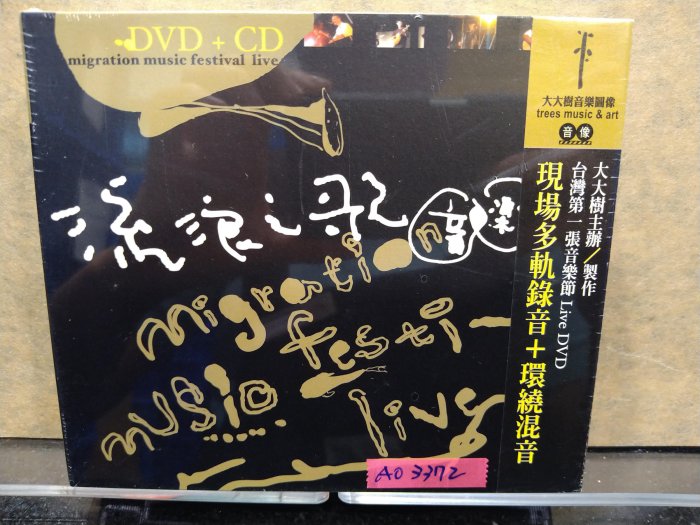 DVD + CD
migration music festival live
流浪之歌音樂
migration
music festi-
live
大大樹音樂圖像
trees music & art
音像
大大樹主辦／製作
台灣第一張音樂節 Live DVD
現場多軌錄音＋環繞混音
AO 3372